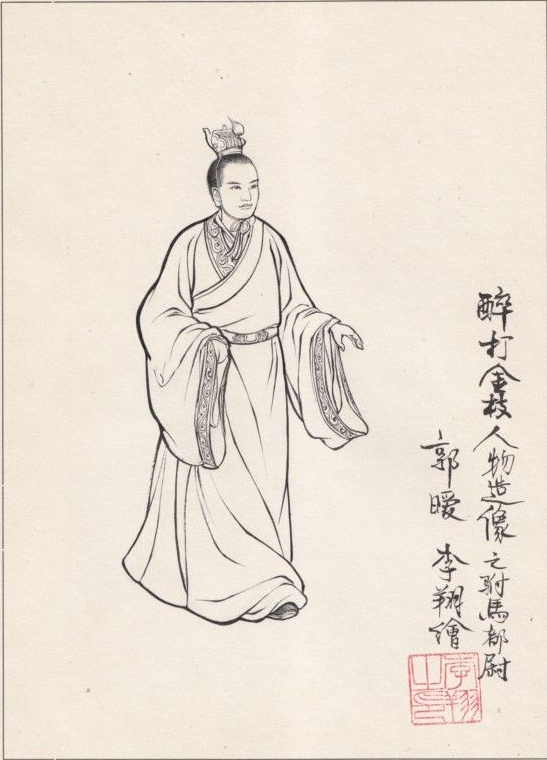 醉打金枝人物造像之駙馬都尉
郭暧 李翔繪
李翔之印